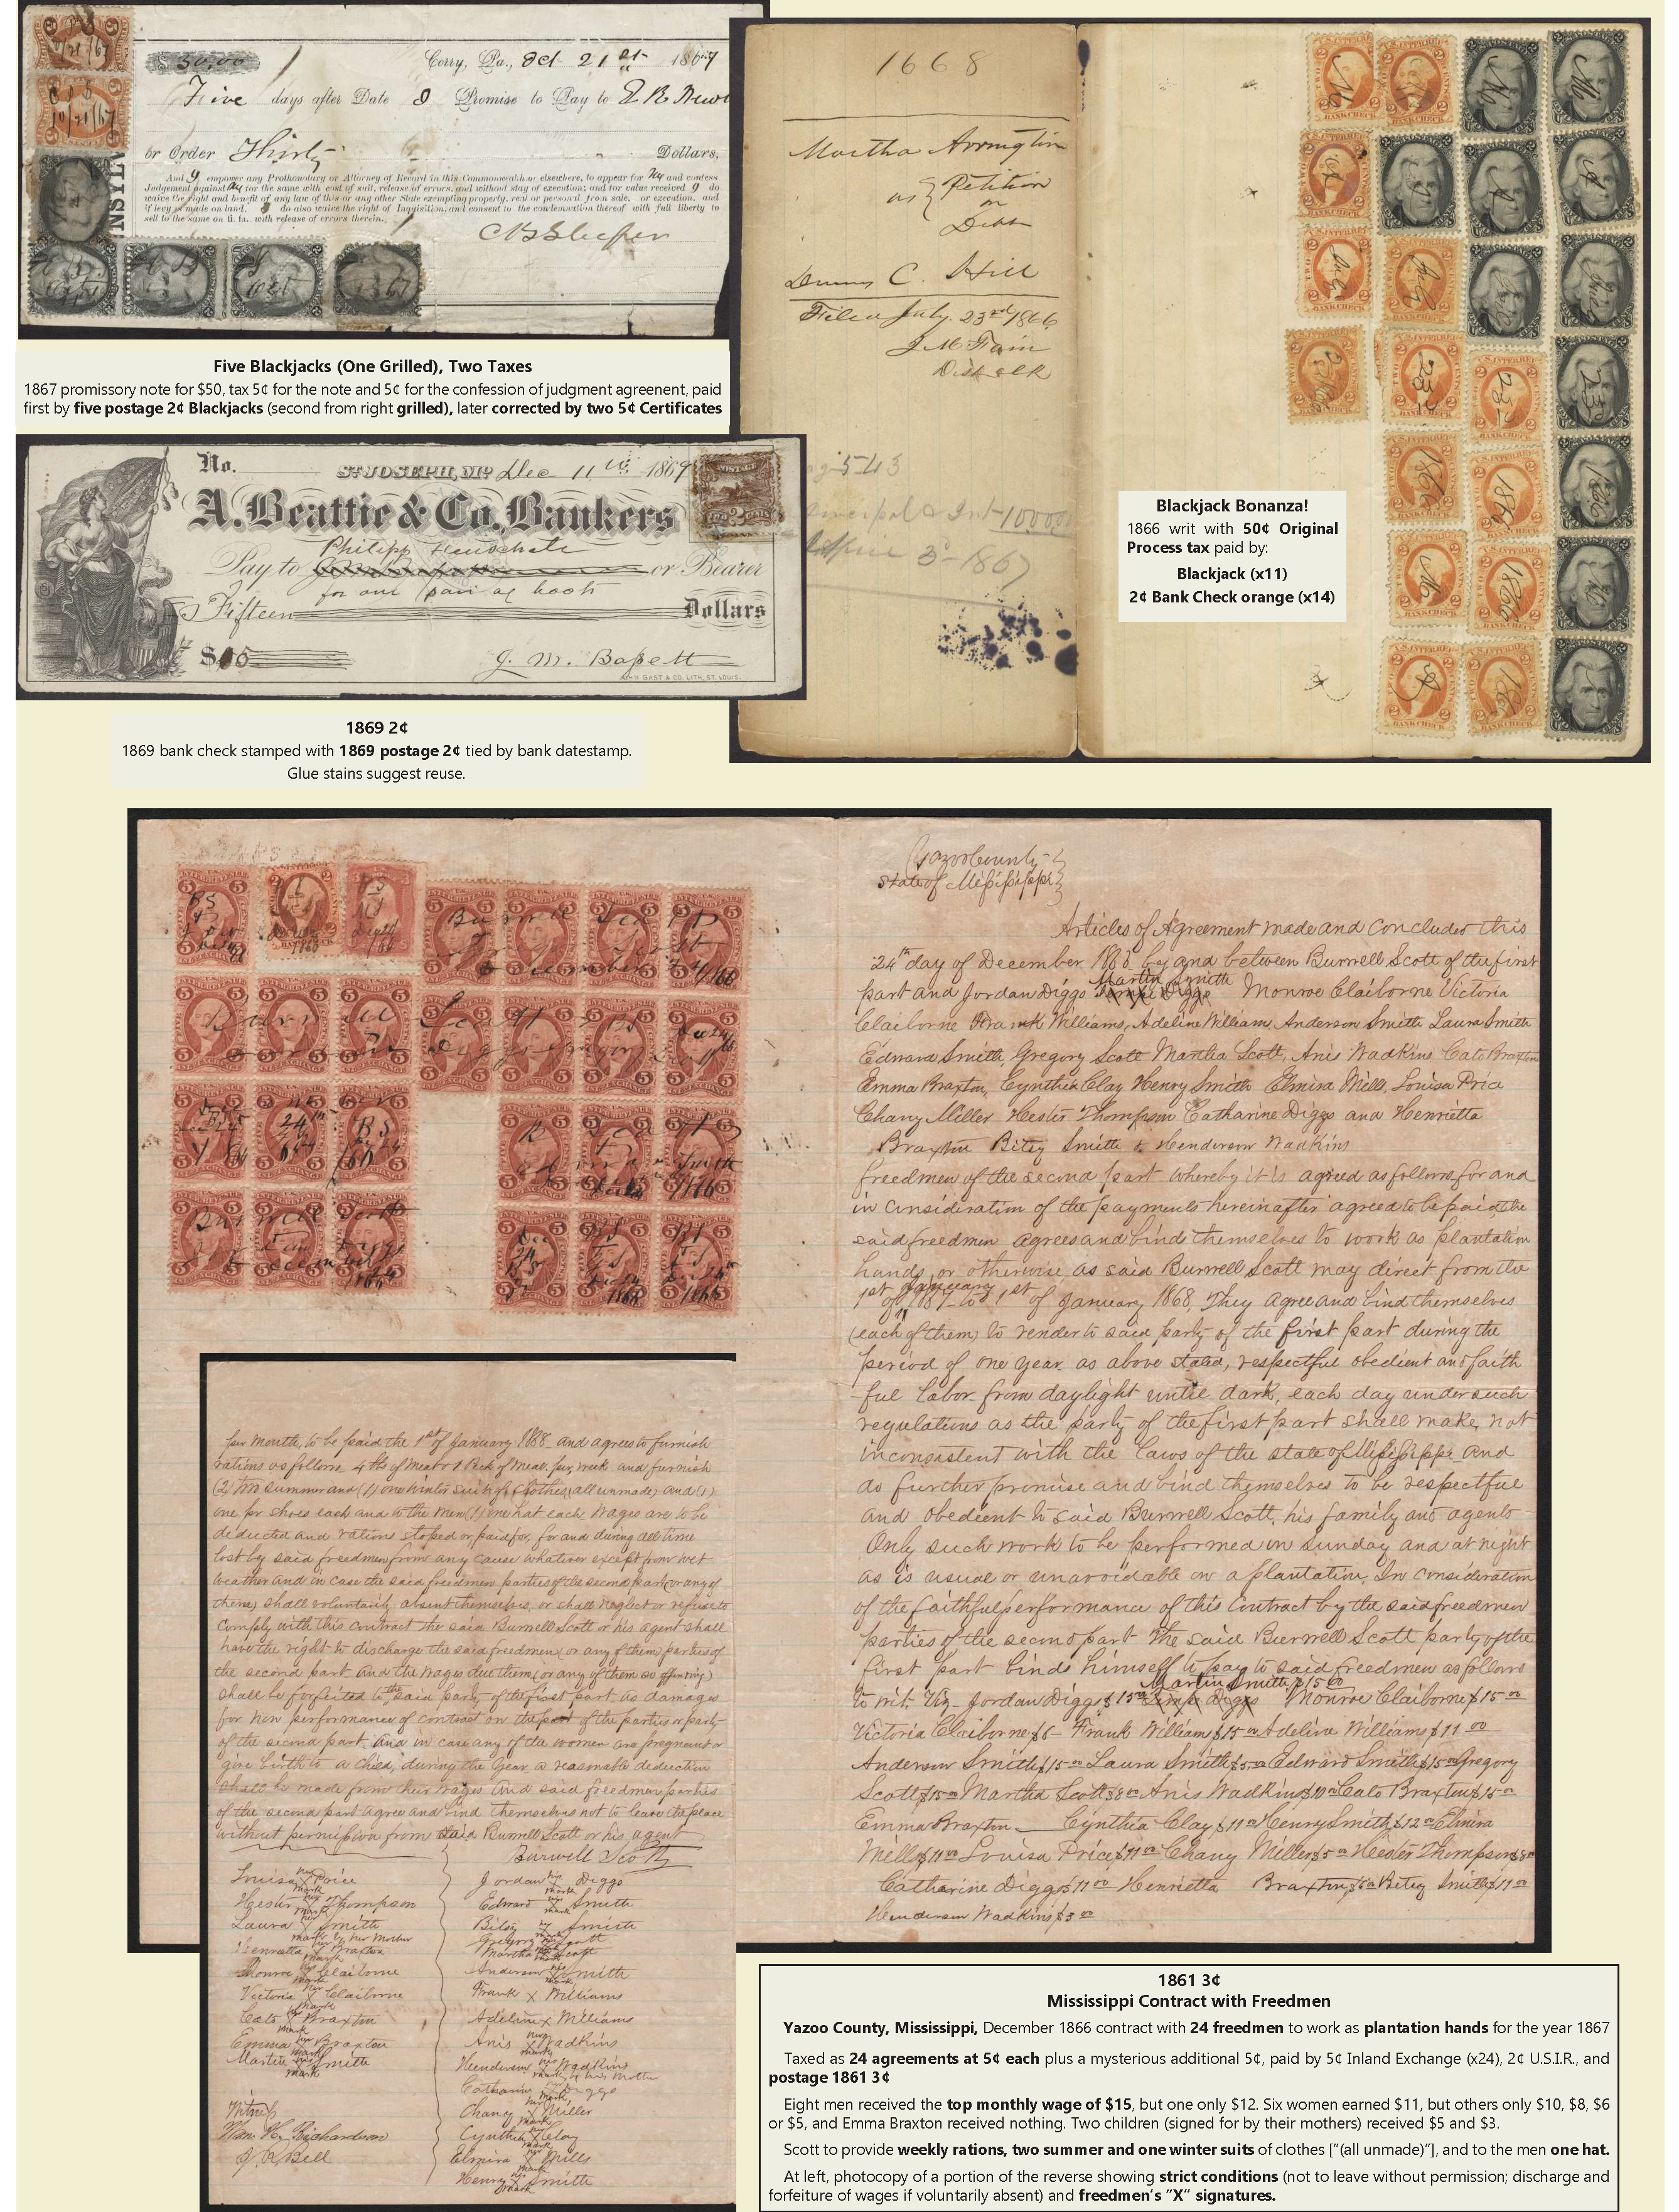 $50.00
Corry, Pa., Oct 21st 1867
Five days after Date I Promise to Pay to
or Order Thirty Dollars,
And I empower any Prothonotary or Attorney of Record in this Commonwealth or elsewhere, to appear for me and confess
Judgement against me for the same with cost of suit, release of errors, and without stay of execution; and for value received I do
waive the right and benefit of any law of this or any other State exempting property, real or personal from sale, or execution, and
if levy is made on land, I do also waive the right of Inquisition, and consent to the condemnation thereof with full liberty to
sell to the same on fi. fa. with release of errors therein.
Five Blackjacks (One Grilled), Two Taxes
1867 promissory note for $50, tax 5¢ for the note and 5¢ for the confession of judgment agreenent, paid
first by five postage 2¢ Blackjacks (second from right grilled), later corrected by two 5¢ Certificates
No. St. Joseph, Mo. Dec 11th 1869
A. Beattie & Co. Bankers
Pay to or Bearer
for one pair of boots
Fifteen Dollars
$15
1869 2¢
1869 bank check stamped with 1869 postage 2¢ tied by bank datestamp.
Glue stains suggest reuse.
1668
Martha Arrington
vs } Petition
on
Debt
C. Hill
Filed July 23rd 1866
Blackjack Bonanza!
1866 writ with 50¢ Original
Process tax paid by:
Blackjack (x11)
2¢ Bank Check orange (x14)
Yazoo County
State of Mississippi
Articles of Agreement made and concluded this
24th day of December 1866 by and between Burwell Scott of the first
part and Jordan Diggs Martin Smith Monroe Claiborne Victoria
Claiborne Frank Williams, Adeline William, Anderson Smith Laura Smith
Edward Smith, Gregory Scott Martha Scott, Anis Wadkins, Cato Braxton
Emma Braxton, Cynthia Clay Henry Smith Elmira Mill, Louisa Price
Chany Miller Hester Thompson Catharine Diggs and Henrietta
Braxton Bitsy Smith & Henderson Wadkins
freedmen of the second part whereby it is agreed as follows for and
in consideration of the payments hereinafter agreed to be paid the
said freedmen agrees and binds themselves to work as plantation
hands, or otherwise as said Burwell Scott may direct from the
1st of January 1867 to 1st of January 1868, They agree and bind themselves
(each of them) to render to said party of the first part during the
period of one year as above stated, respectful obedient and faith
ful labor from daylight until dark, each day under such
regulations as the party of the first part shall make, not
inconsistent with the laws of the state of Mississippi and
do further promise and bind themselves to be respectful
and obedient to said Burwell Scott, his family and agents
Only such work to be performed on Sunday and at night
as is usual or unavoidable on a plantation, In consideration
of the faithful performance of this contract by the said freedmen
parties of the second part The said Burwell Scott party of the
first part binds himself to pay to said freedmen as follows
to wit, Viz- Jordan Diggs $15 00 Martin Smith $15 00 Monroe Claiborne $15 00
Victoria Claiborne $6 - Frank Williams $15 00 Adeline Williams $11 00
Anderson Smith $15 00 Laura Smith $5 00 Edward Smith $15 00 Gregory
Scott $15 00 Martha Scott $8 00 Anis Wadkins $10 00 Cato Braxton $15 00
Emma Braxton — Cynthia Clay $11 00 Henry Smith $12 00 Elmira
Mills $11 00 Louisa Price $11 00 Chany Miller $5 00 Hester Thompson $8 00
Catharine Diggs $11 00 Henrietta Braxton $6 00 Bitsy Smith $11 00
Henderson Wadkins $3 00
per month, to be paid the 1st of January 1868 and agrees to furnish
rations as follows 4 lbs of meat & 1 Peck of meal per week and furnish
(2) two summer and (1) one winter suit of clothes (all unmade) and (1)
one pr shoes each and to the men (1) one hat each Wages are to be
deducted and rations stoped or paid for, for and during all time
lost by said freedmen from any cause whatever except from wet
weather and in case the said freedmen parties of the second part (or any of
them) shall voluntarily absent themselves, or shall neglect or refuse to
comply with this contract the said Burwell Scott or his agent shall
have the right to discharge the said freedmen (or any of them) parties of
the second part and the wages due them (or any of them so offending)
shall be forfeited to the said party of the first part as damages
for non performance of contract on the part of the parties or party
of the second part. And in case any of the women are pregnant or
give birth to a child, during the year, a reasonable deduction
shall be made from their wages And said freedmen parties
of the second part agree and bind themselves not to leave the place
without permission from said Burwell Scott or his agent
Burwell Scott
Louisa X Price
Hester X Thompson
Laura X Smith
mark by her Mother
Henrietta X Braxton
Monroe X Claiborne
Victoria X Claiborne
Cato X Braxton
Emma X Braxton
Martin X Smith
Witness
Wm. H. Richardson
Bell
Jordan X Diggs
Edward X Smith
Bitsy X Smith
Gregory Scott
Martha Scott
Anderson X Smith
Frank X Williams
Adeline X Williams
Anis X Wadkins
Henderson X Wadkins
Catharine Diggs
Chany X Miller
Cynthia X Clay
Elmira X Mills
Henry X Smith
1861 3¢
Mississippi Contract with Freedmen
Yazoo County, Mississippi, December 1866 contract with 24 freedmen to work as plantation hands for the year 1867
Taxed as 24 agreements at 5¢ each plus a mysterious additional 5¢, paid by 5¢ Inland Exchange (x24), 2¢ U.S.I.R., and
postage 1861 3¢
Eight men received the top monthly wage of $15, but one only $12. Six women earned $11, but others only $10, $8, $6
or $5, and Emma Braxton received nothing. Two children (signed for by their mothers) received $5 and $3.
Scott to provide weekly rations, two summer and one winter suits of clothes ["(all unmade)"], and to the men one hat.
At left, photocopy of a portion of the reverse showing strict conditions (not to leave without permission; discharge and
forfeiture of wages if voluntarily absent) and freedmen's "X" signatures.